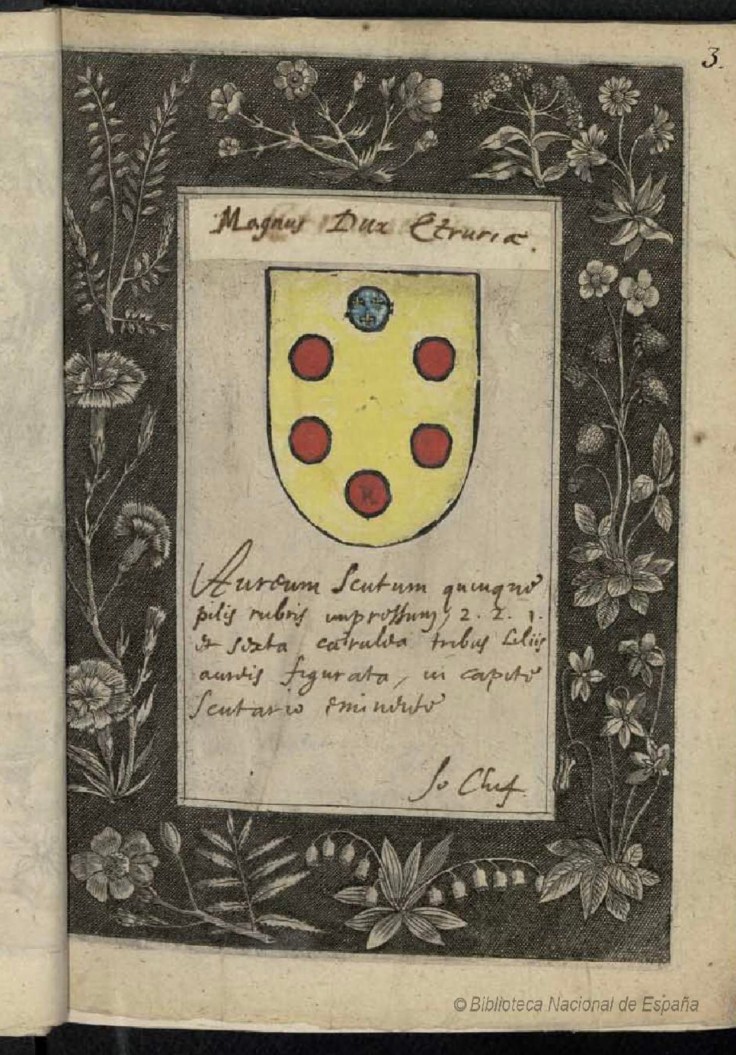 3.
Magnus Dux Etruriæ.
Aureum Scutum quinque
pilis rubris impressum, 2. 2. 1.
et sexta cærulea tribus Liliis
aureis figurata, in capite
Scutario eminente
R
© Biblioteca Nacional de España